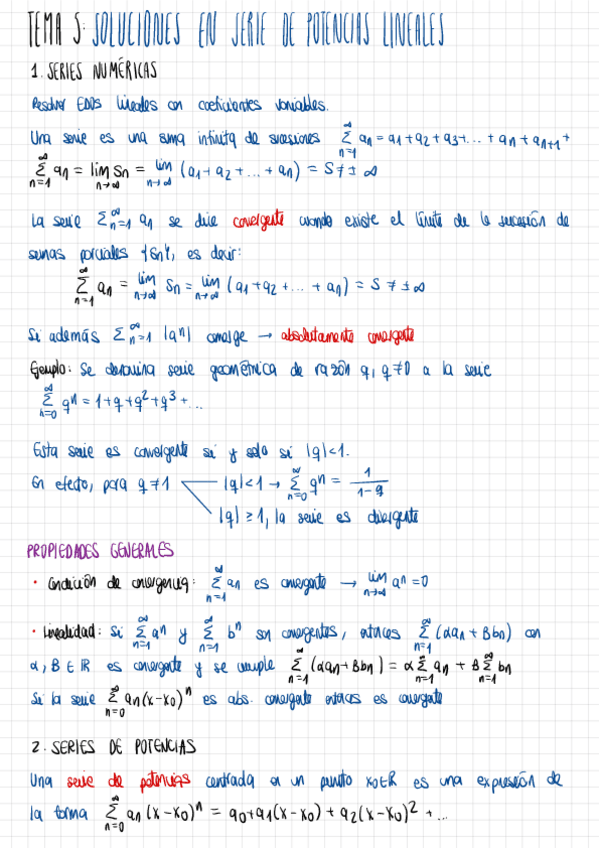 TEMA 5: SOLUCIONES EN SERIE DE POTENCIAS LINEALES
1. SERIES NUMÉRICAS
Resolver EDOs lineales con coeficientes variables.
Una serie es una suma infinita de sucesiones ∑_{n=1}^{∞} an = a1 + a2 + a3 + ... + an + an+1 +
∑_{n=1}^{∞} an = lim_{n→∞} Sn = lim_{n→∞} (a1 + a2 + ... + an) = S ≠ ± ∞
La serie ∑_{n=1}^{∞} an se dice convergente cuando existe el límite de la sucesión de
sumas parciales {Sn}, es decir:
∑_{n=1}^{∞} an = lim_{n→∞} Sn = lim_{n→∞} (a1 + a2 + ... + an) = S ≠ ± ∞
Si además ∑_{n=1}^{∞} |aⁿ| converge → absolutamente convergente
Ejemplo: Se denomina serie geométrica de razón q, q ≠ 0 a la serie
∑_{n=0}^{∞} qⁿ = 1 + q + q² + q³ + ...
Esta serie es convergente si y solo si |q| < 1.
En efecto, para q ≠ 1 |q| < 1 → ∑_{n=0}^{∞} qⁿ = 1/(1-q)
|q| ≥ 1, la serie es divergente
PROPIEDADES GENERALES
• Condición de convergencia: ∑_{n=1}^{∞} an es convergente → lim_{n→∞} aⁿ = 0
• Linealidad: Si ∑_{n=1}^{∞} aⁿ y ∑_{n=1}^{∞} bⁿ son convergentes, entonces ∑_{n=1}^{∞} (αan + Bbn) con
α, B ∈ ℝ es convergente y se cumple ∑_{n=1}^{∞} (αan + Bbn) = α ∑_{n=1}^{∞} an + B ∑_{n=1}^{∞} bn
Si la serie ∑_{n=0}^{∞} an(x-x0)ⁿ es abs. convergente entonces es convergente
2. SERIES DE POTENCIAS
Una serie de potencias centrada en un punto x0∈ℝ es una expresión de
la forma ∑_{n=0}^{∞} an (x-x0)ⁿ = a0 + a1(x-x0) + a2(x-x0)² + ...